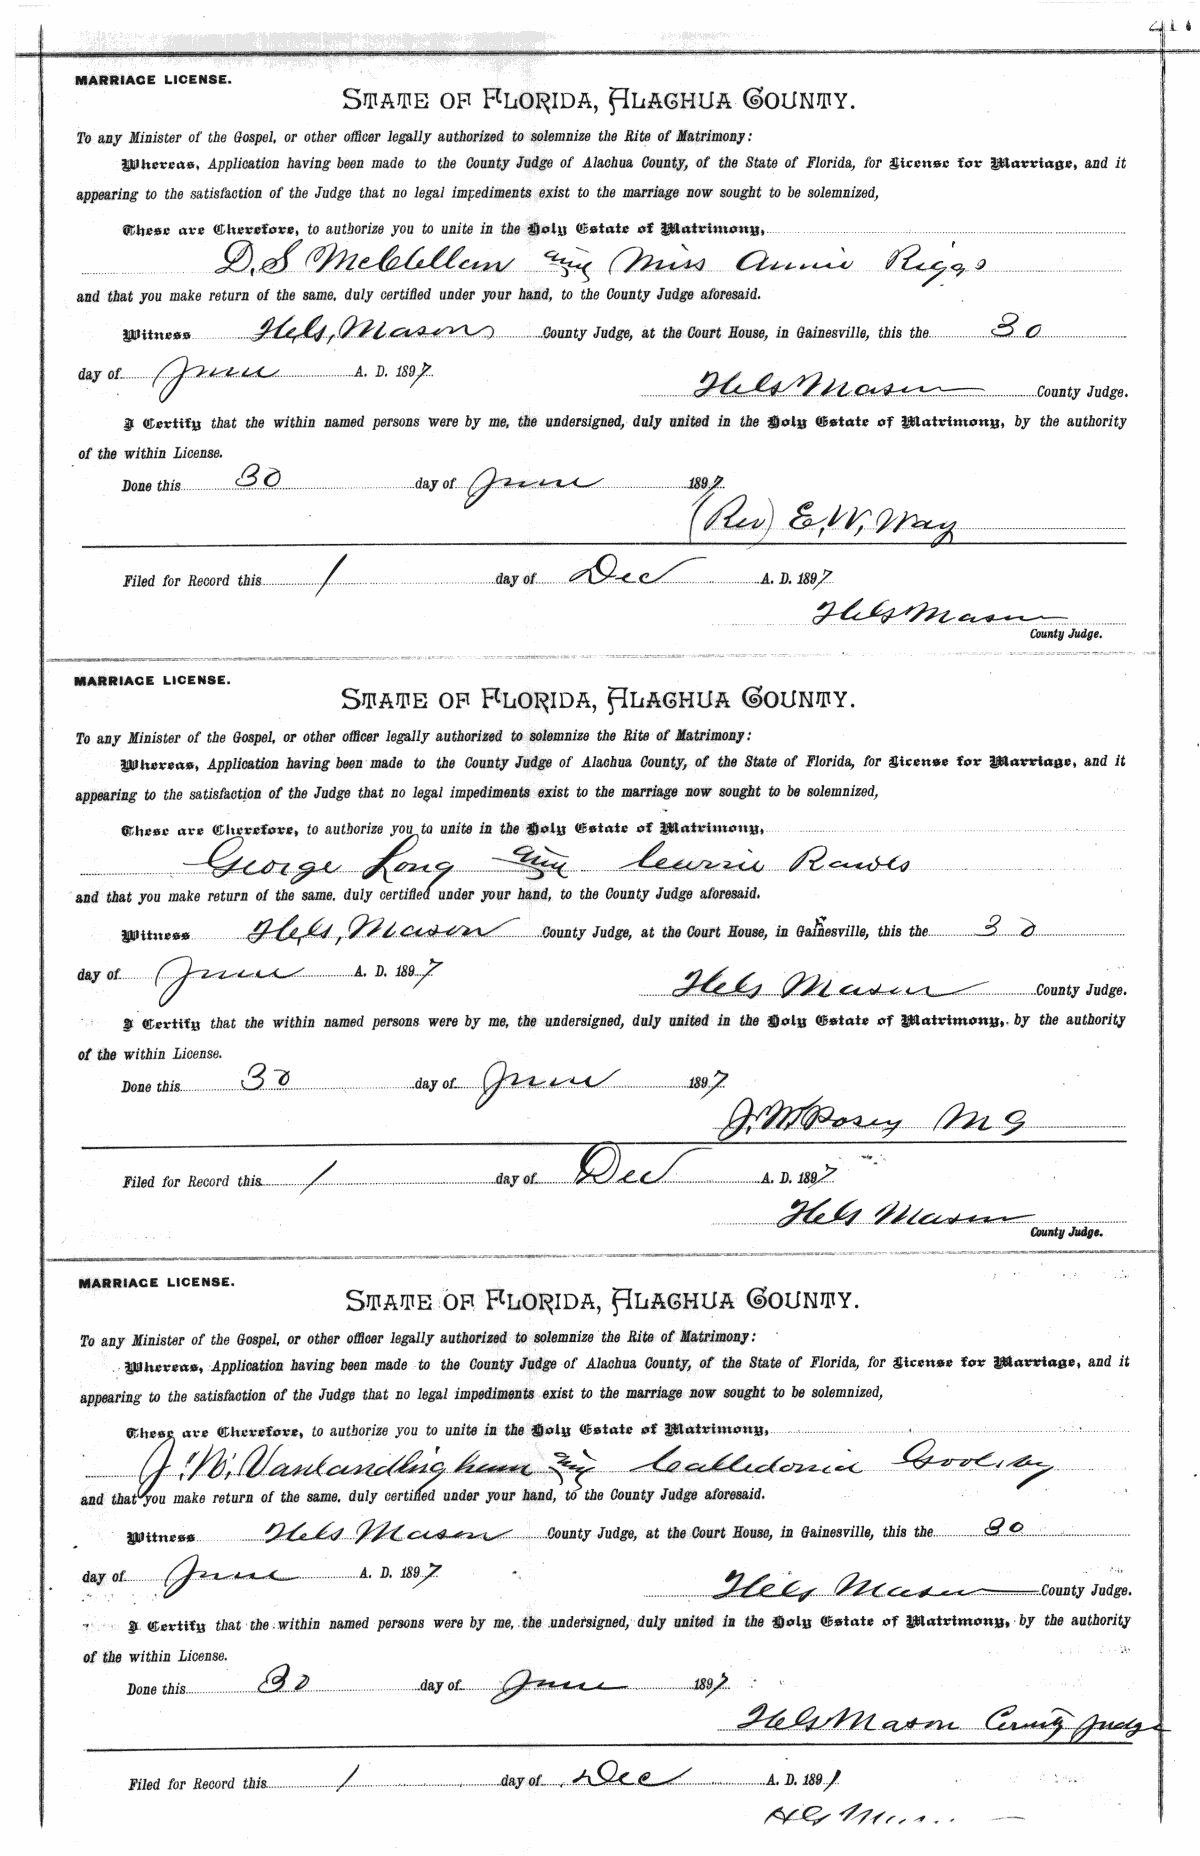 MARRIAGE LICENSE.
STATE OF FLORIDA, ALACHUA COUNTY.
To any Minister of the Gospel, or other officer legally authorized to solemnize the Rite of Matrimony:
Whereas, Application having been made to the County Judge of Alachua County, of the State of Florida, for License for Marriage, and it
appearing to the satisfaction of the Judge that no legal impediments exist to the marriage now sought to be solemnized,
These are Therefore, to authorize you to unite in the Holy Estate of Matrimony,
D. S McClellan and Miss Annie Riggs
and that you make return of the same, duly certified under your hand, to the County Judge aforesaid.
Witness H. G. Mason County Judge, at the Court House, in Gainesville, this the 30
day of June A. D. 1897
H G Mason County Judge.
I Certify that the within named persons were by me, the undersigned, duly united in the Holy Estate of Matrimony, by the authority
of the within License.
Done this 30 day of June 1897
(Rev) E. W. Way
Filed for Record this 1 day of Dec A. D. 1897
H G Mason
County Judge.
MARRIAGE LICENSE.
STATE OF FLORIDA, ALACHUA COUNTY.
To any Minister of the Gospel, or other officer legally authorized to solemnize the Rite of Matrimony:
Whereas, Application having been made to the County Judge of Alachua County, of the State of Florida, for License for Marriage, and it
appearing to the satisfaction of the Judge that no legal impediments exist to the marriage now sought to be solemnized,
These are Therefore, to authorize you to unite in the Holy Estate of Matrimony,
George Long and Rawls
and that you make return of the same, duly certified under your hand, to the County Judge aforesaid.
Witness H. G. Mason County Judge, at the Court House, in Gainesville, this the 30
day of June A. D. 1897
H G Mason County Judge.
I Certify that the within named persons were by me, the undersigned, duly united in the Holy Estate of Matrimony, by the authority
of the within License.
Done this 30 day of June 1897
J. W. Posey M G
Filed for Record this 1 day of Dec A. D. 1897
H G Mason
County Judge.
MARRIAGE LICENSE.
STATE OF FLORIDA, ALACHUA COUNTY.
To any Minister of the Gospel, or other officer legally authorized to solemnize the Rite of Matrimony:
Whereas, Application having been made to the County Judge of Alachua County, of the State of Florida, for License for Marriage, and it
appearing to the satisfaction of the Judge that no legal impediments exist to the marriage now sought to be solemnized,
These are Therefore, to authorize you to unite in the Holy Estate of Matrimony,
J. W. Vanlandingham and Calledonia Goolsby
and that you make return of the same, duly certified under your hand, to the County Judge aforesaid.
Witness H G Mason County Judge, at the Court House, in Gainesville, this the 30
day of June A. D. 1897
H G Mason County Judge.
I Certify that the within named persons were by me, the undersigned, duly united in the Holy Estate of Matrimony, by the authority
of the within License.
Done this 30 day of June 1897
H G Mason County Judge
Filed for Record this 1 day of Dec A. D. 189
H G